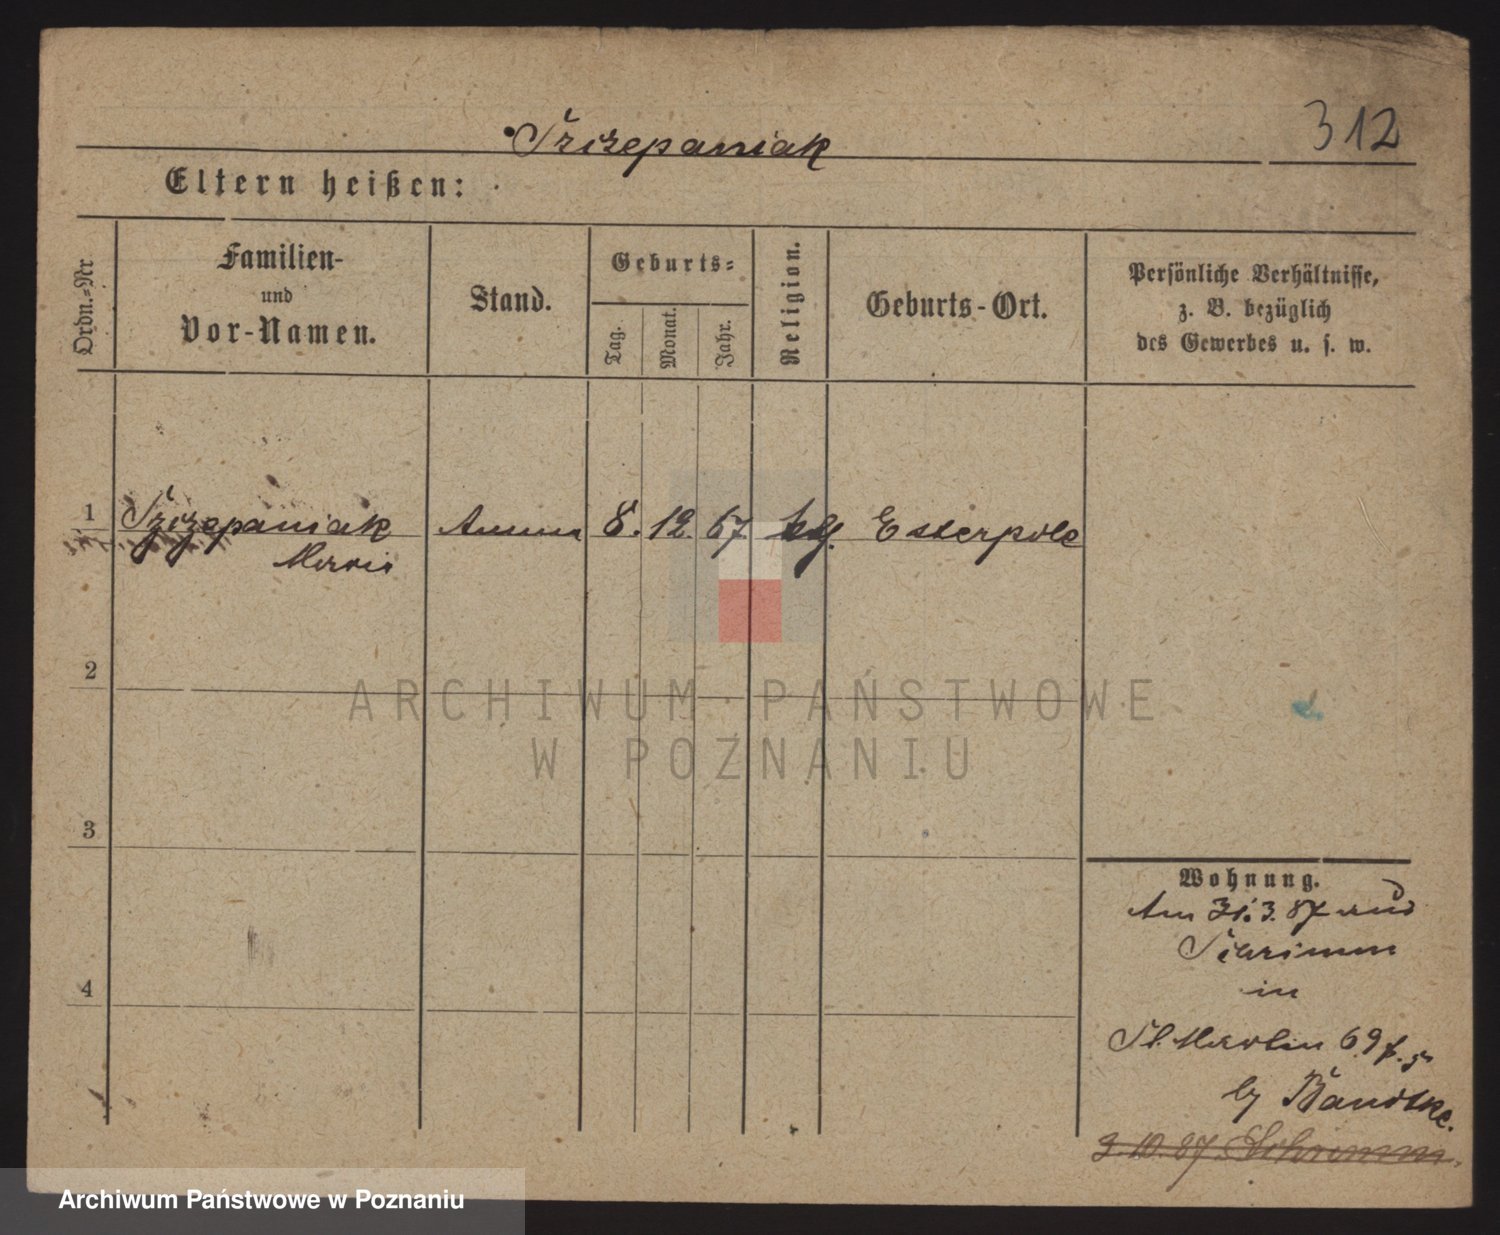 Szczepaniak 312
Eltern heißen:
Ordn.-Nr
Familien-
und
Vor-Namen.
Stand.
Geburts-
Tag.
Monat.
Jahr.
Religion.
Geburts-Ort.
Persönliche Verhältnisse,
z. B. bezüglich
des Gewerbes u. s. w.
1 Szczepaniak Amme 8. 12. 67 Esterpole
Marie
2
3
4
Wohnung.
Am 31.3.87 aus
Schrimm
in
St. Martin 69
by Bandtke.
3.10.87 Schrimm.
ARCHIWUM PAŃSTWOWE
W POZNANIU
Archiwum Państwowe w Poznaniu